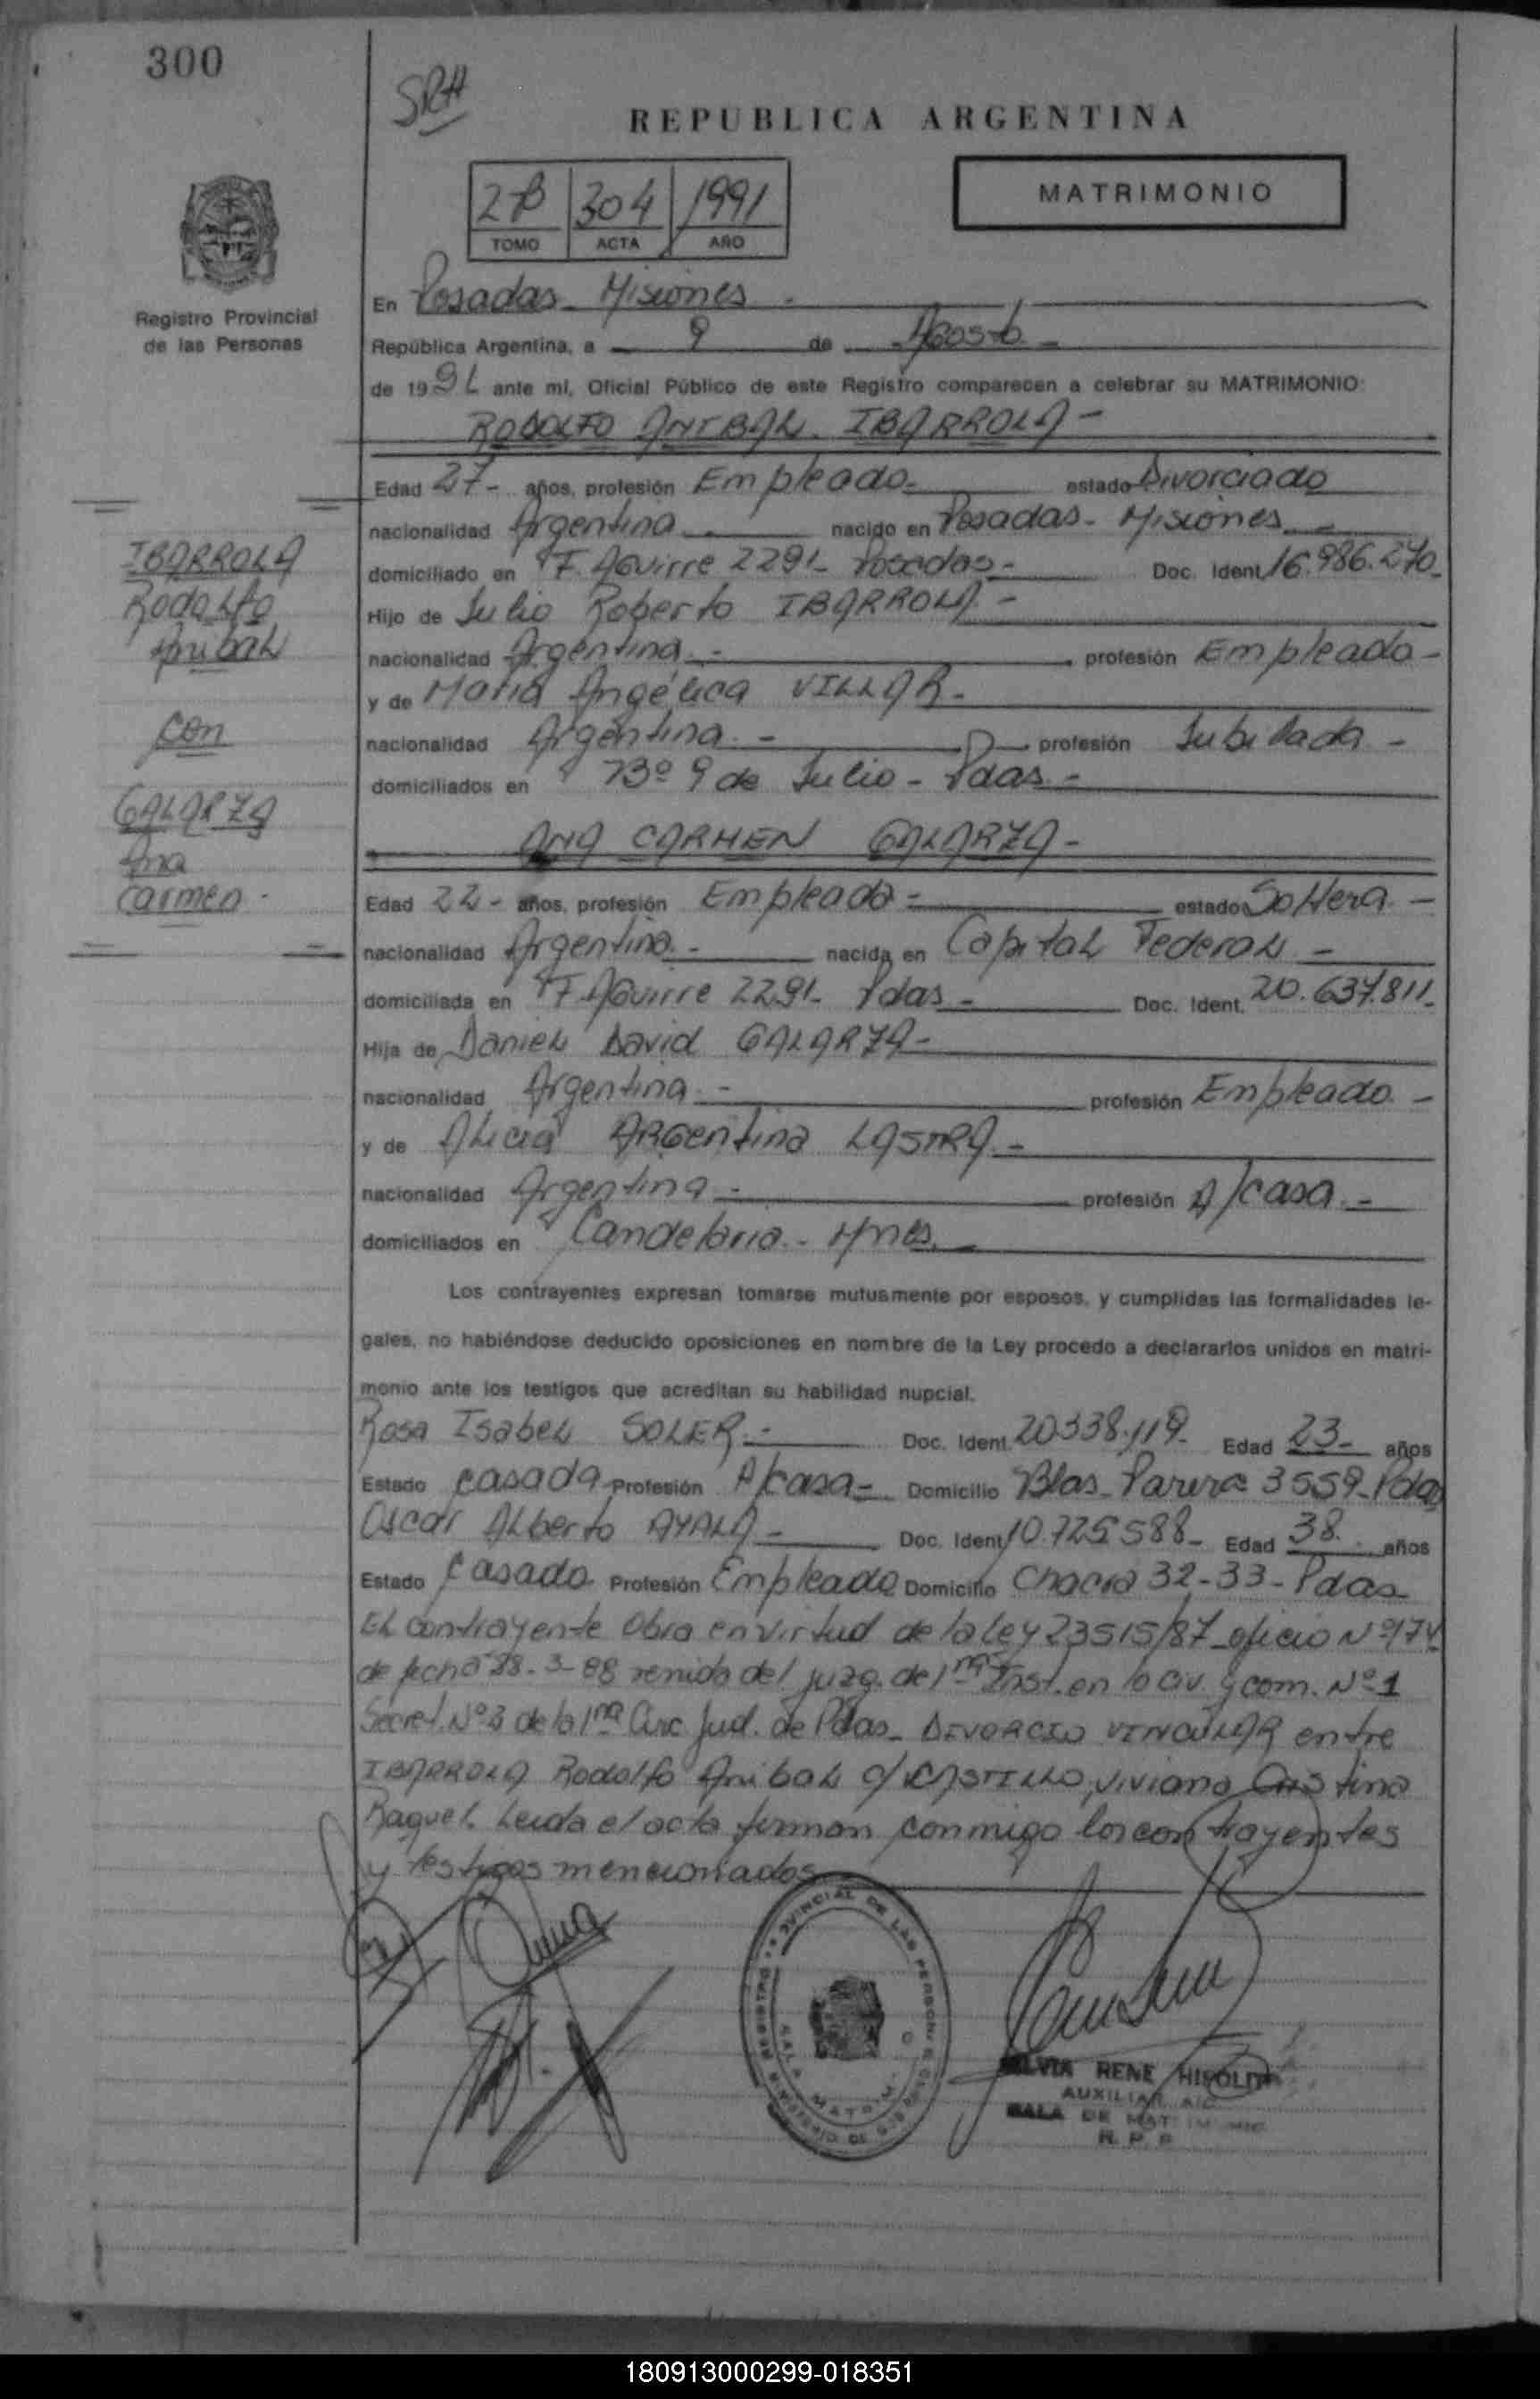 300
SRH
REPUBLICA ARGENTINA
2B 304 1991
TOMO ACTA AÑO
MATRIMONIO
Registro Provincial
de las Personas
En Posadas - Misiones -
República Argentina, a 9 de Agosto -
de 1991 ante mí, Oficial Público de este Registro comparecen a celebrar su MATRIMONIO:
RODOLFO ANIBAL IBARROLA -
Edad 27 - años, profesión Empleado - estado Divorciado
nacionalidad Argentina - nacido en Posadas - Misiones -
domiciliado en F. Aguirre 2291 - Posadas - Doc. Ident. 16.986.270 -
Hijo de Julio Roberto IBARROLA -
nacionalidad Argentina - profesión Empleado -
y de Maria Angélica VILLAR -
nacionalidad Argentina - profesión Jubilada -
domiciliados en Bº 9 de Julio - Pdas -
IBARROLA
Rodolfo
Anibal
con
GALARZA
Ana
Carmen -
ANA CARMEN GALARZA -
Edad 22 - años, profesión Empleada - estado Soltera -
nacionalidad Argentina - nacida en Capital Federal -
domiciliada en F. Aguirre 2291 - Pdas - Doc. Ident. 20.637.811 -
Hija de Daniel David GALARZA -
nacionalidad Argentina - profesión Empleado -
y de Alicia ARGentina LASTRA -
nacionalidad Argentina - profesión A/casa -
domiciliados en Candelaria - Mnes. -
Los contrayentes expresan tomarse mutuamente por esposos, y cumplidas las formalidades le-
gales, no habiéndose deducido oposiciones en nombre de la Ley procedo a declararlos unidos en matri-
monio ante los testigos que acreditan su habilidad nupcial.
Rosa Isabel SOLER - Doc. Ident. 20.338.119 - Edad 23 - años
Estado casada Profesión A/casa - Domicilio Blas Parera 3559 - Pdas
Oscar Alberto AYALA - Doc. Ident. 10.725.588 - Edad 38 años
Estado Casado Profesión Empleado Domicilio Chacra 32-33 - Pdas
El contrayente obra en virtud de la Ley 23515/87 - oficio Nº 174
de fecha 28-3-88 venido del juzg. de 1ra Inst. en lo Civ. y com. Nº 1
Secret. Nº 2 de la 1ra Circ. Jud. de Pdas - DIVORCIO VINCULAR entre
IBARROLA Rodolfo Anibal c/ CASTILLO, Viviana Cristina
Raquel. Leida el acta firman conmigo los contrayentes
y testigos mencionados
REGISTRO PROVINCIAL DE LAS PERSONAS
SALA MATRIM
SILVIA RENE HIPOLITO
AUXILIAR
SALA DE MATRIMONIO
R. P. P.
180913000299-018351